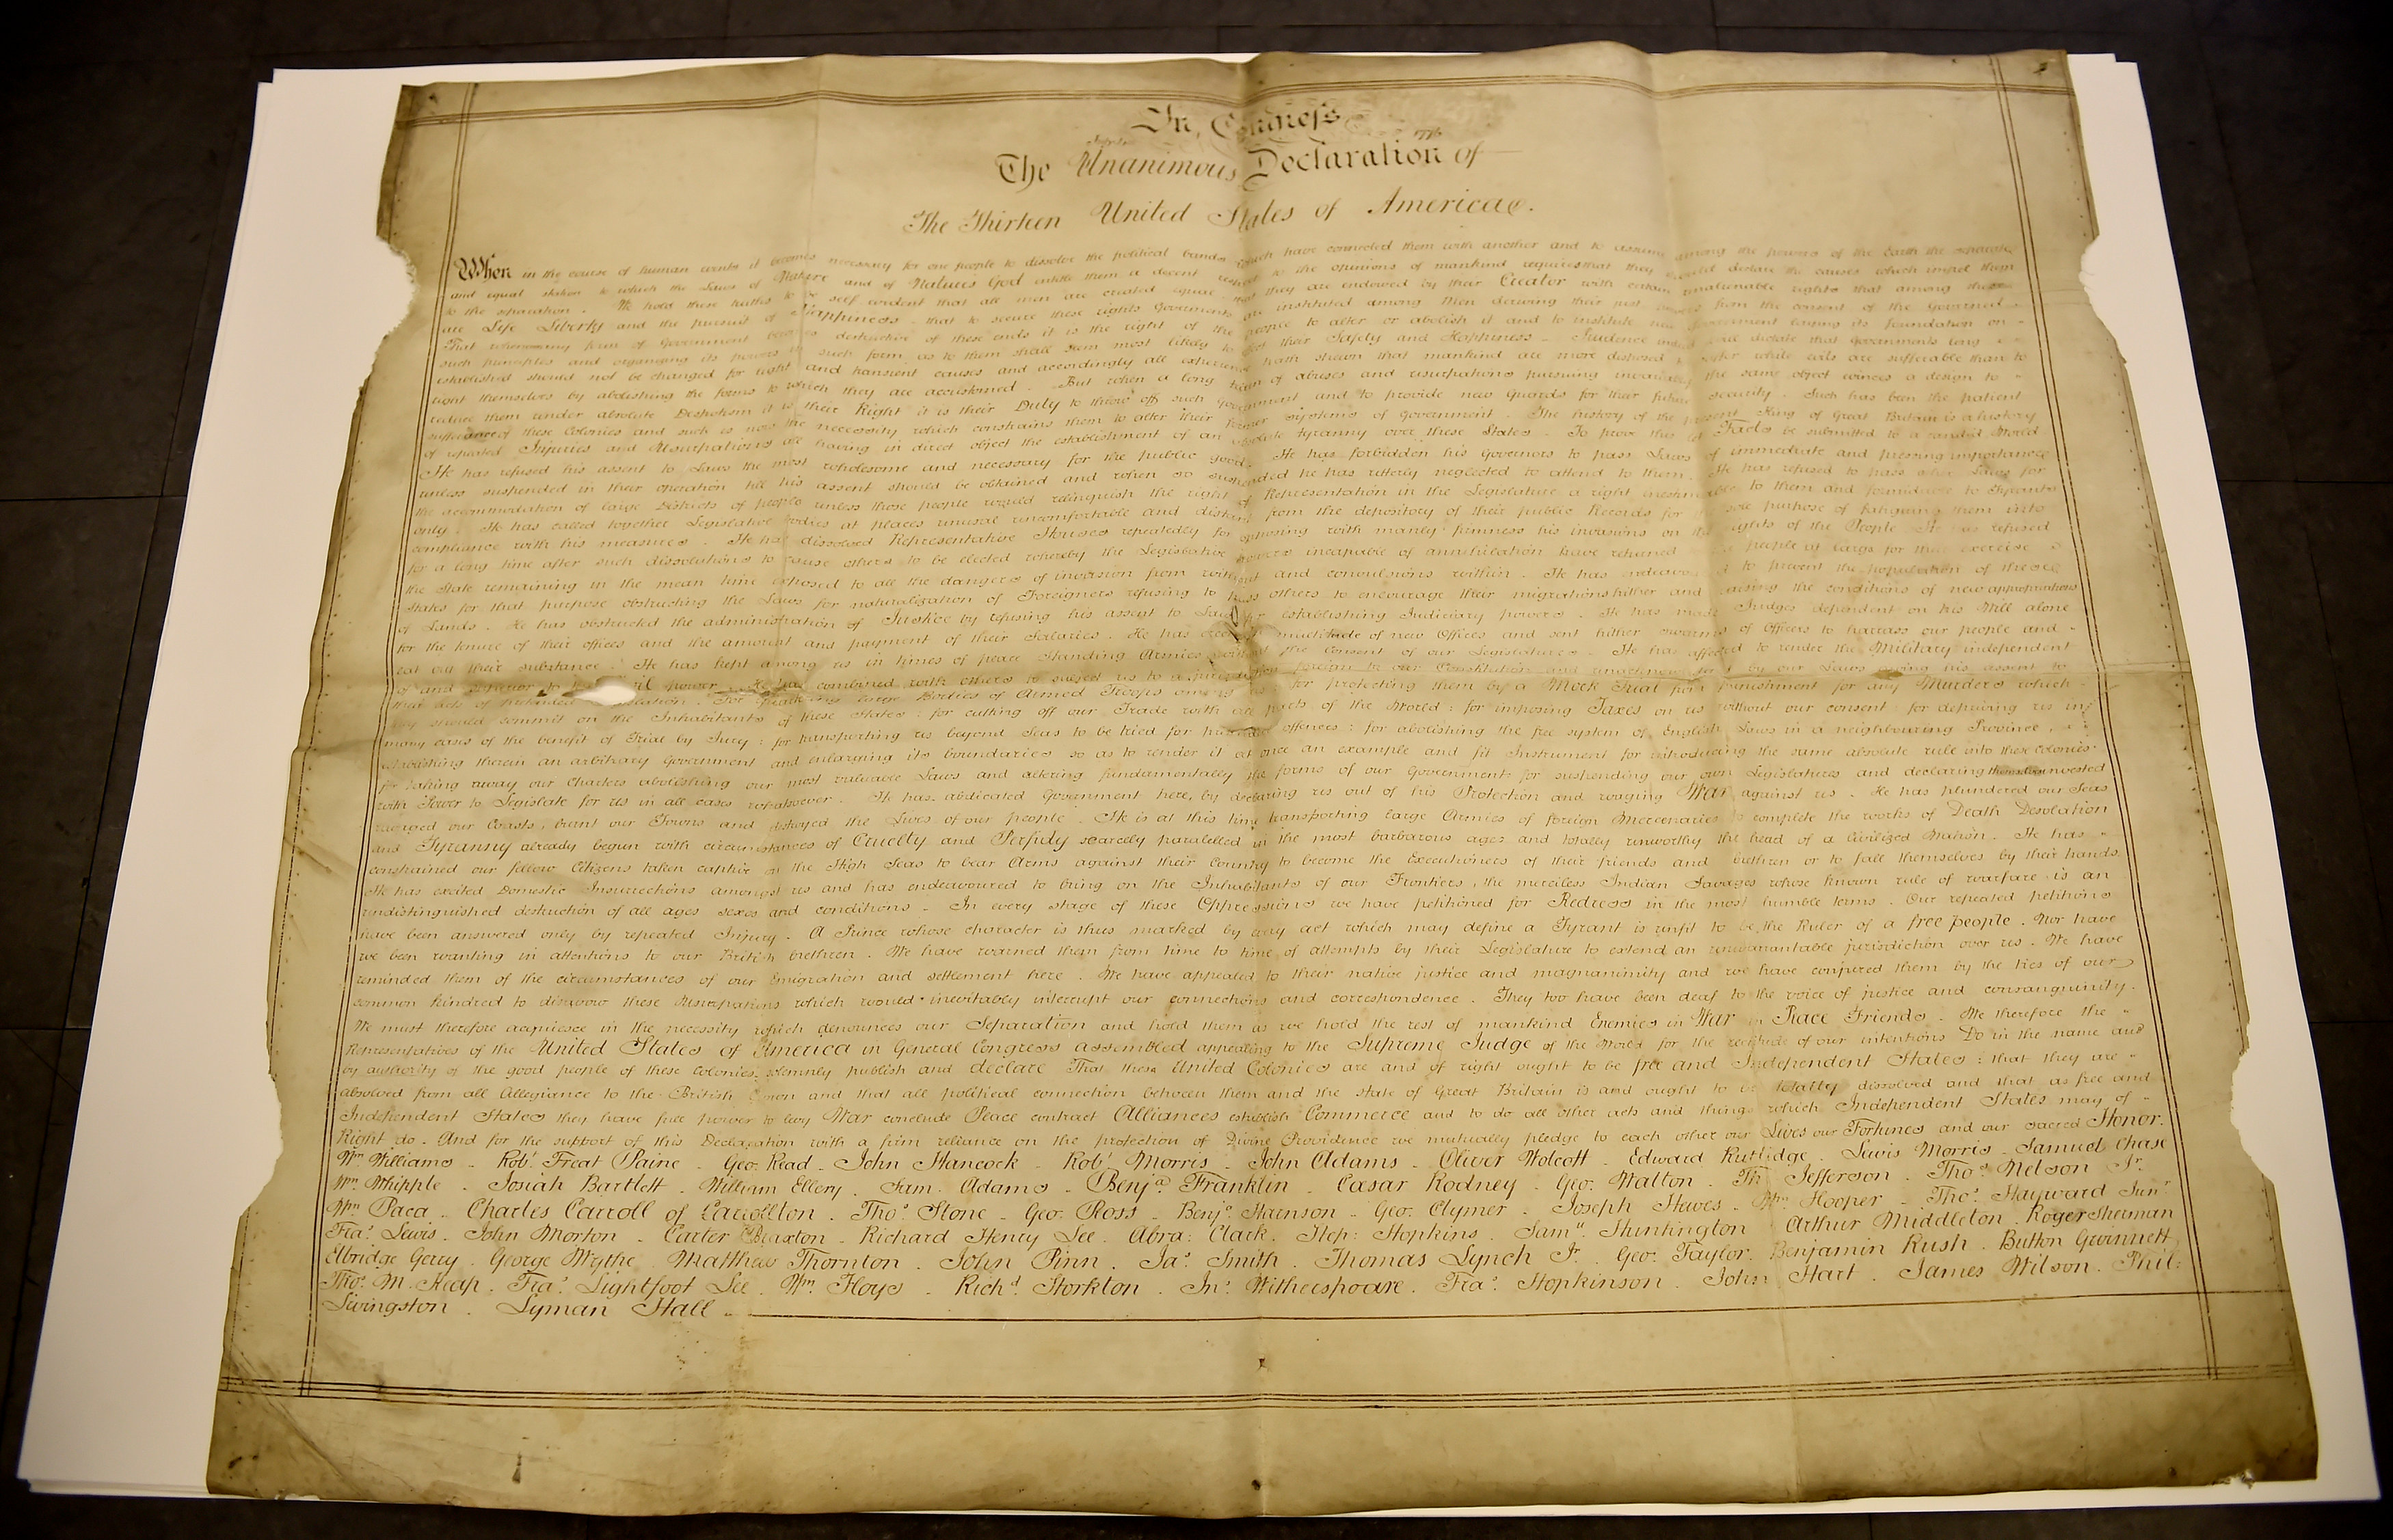 In Congress
1776
The Unanimous Declaration of
The Thirteen United States of America.
When in the course of human events it becomes necessary for one people to dissolve the political bands which have connected them with another and to assume among the powers of the Earth the separate
and equal station to which the Laws of Nature and of Natures God entitle them a decent respect to the opinions of mankind requires that they should declare the causes which impel them
to the separation . We hold these truths to be self evident that all men are created equal that they are endowed by their Creator with certain unalienable rights that among these
are Life Liberty and the pursuit of Happiness . that to secure these rights Governments are instituted among Men deriving their just powers from the consent of the Governed
That whenever any form of Government becomes destructive of these ends it is the right of the people to alter or abolish it and to institute new Government laying its foundation on
such principles and organizing its powers in such form as to them shall seem most likely to effect their Safety and Happiness . Prudence indeed will dictate that Governments long
established should not be changed for light and transient causes and accordingly all experience hath shewn that mankind are more disposed to suffer while evils are sufferable than to
right themselves by abolishing the forms to which they are accustomed . But when a long train of abuses and usurpations pursuing invariably the same object evinces a design to
reduce them under absolute Despotism it is their Right it is their Duty to throw off such Government and to provide new Guards for their future security . Such has been the patient
sufferance of these Colonies and such is now the necessity which constrains them to alter their former systems of Government . The history of the present King of Great Britain is a history
of repeated Injuries and Usurpations all having in direct object the establishment of an absolute tyranny over these States . To prove this let Facts be submitted to a candid World
He has refused his assent to Laws the most wholesome and necessary for the public good . He has forbidden his Governors to pass Laws of immediate and pressing importance
unless suspended in their operation till his assent should be obtained and when so suspended he has utterly neglected to attend to them . He has refused to pass other Laws for
the accommodation of large Districts of people unless those people would relinquish the right of Representation in the Legislature a right inestimable to them and formidable to Tyrants
only . He has called together Legislative bodies at places unusual uncomfortable and distant from the depository of their public Records for the sole purpose of fatiguing them into
compliance with his measures . He has dissolved Representative Houses repeatedly for opposing with manly firmness his invasions on the rights of the People He has refused
for a long time after such dissolutions to cause others to be elected whereby the Legislative powers incapable of annihilation have returned people at large for their exercise
the State remaining in the mean time exposed to all the dangers of invasion from without and convulsions within . He has endeavoured to prevent the population of these
States for that purpose obstructing the Laws for naturalization of Foreigners refusing to pass others to encourage their migrations hither and raising the conditions of new appropriations
of Lands . He has obstructed the administration of Justice by refusing his assent to Laws for establishing Judiciary powers . He has made Judges dependent on his Will alone
for the tenure of their offices and the amount and payment of their Salaries . He has erected multitude of new Offices and sent hither swarms of Officers to harrass our people and
eat out their substance . He has kept among us in times of peace Standing Armies without the consent of our Legislatures . He has affected to render the Military independent
of and superior to the Civil power . He has combined with others to subject us to a jurisdiction foreign to our Constitution and unacknowledged by our Laws giving his assent to
their acts of pretended Legislation . For quartering large Bodies of Armed Troops among us for protecting them by a Mock Trial from punishment for any Murders which
they should commit on the Inhabitants of these States : for cutting off our Trade with all parts of the World : for imposing Taxes on us without our consent : for depriving us in
many cases of the benefit of Trial by Jury : for transporting us beyond Seas to be tried for pretended offences : for abolishing the free system of English Laws in a neighbouring Province ,
establishing therein an arbitrary Government and enlarging its boundaries so as to render it at once an example and fit Instrument for introducing the same absolute rule into these Colonies
for taking away our Charters abolishing our most valuable Laws and altering fundamentally the forms of our Governments for suspending our own Legislatures and declaring themselves invested
with Power to Legislate for us in all cases whatsoever . He has abdicated Government here, by declaring us out of his Protection and waging War against us . He has plundered our Seas
ravaged our Coasts, burnt our Towns and destroyed the Lives of our people . He is at this time transporting large Armies of foreign Mercenaries to complete the works of Death Desolation
and Tyranny already begun with circumstances of Cruelty and Perfidy scarcely paralelled in the most barbarous ages and totally unworthy the head of a Civilized Nation . He has
constrained our fellow Citizens taken captive on the High Seas to bear Arms against their Country to become the Executioners of their friends and brethren or to fall themselves by their hands
He has excited Domestic Insurrections amongst us and has endeavoured to bring on the Inhabitants of our Frontiers , the merciless Indian Savages whose known rule of warfare is an
undistinguished destruction of all ages sexes and conditions . In every stage of these Oppressions we have petitioned for Redress in the most humble terms . Our repeated petitions
have been answered only by repeated Injury . A Prince whose character is thus marked by any act which may define a Tyrant is unfit to be the Ruler of a free people . Nor have
we been wanting in attentions to our British brethren . We have warned them from time to time of attempts by their Legislature to extend an unwarrantable jurisdiction over us . We have
reminded them of the circumstances of our Emigration and settlement here . We have appealed to their native justice and magnanimity and we have conjured them by the ties of our
common kindred to disavow these Usurpations which would inevitably interrupt our connections and correspondence . They too have been deaf to the voice of justice and consanguinity .
We must therefore acquiesce in the necessity which denounces our Separation and hold them as we hold the rest of mankind Enemies in War in Peace Friends . We therefore the
Representatives of the United States of America in General Congress assembled appealing to the Supreme Judge of the World for the rectitude of our intentions Do in the name and
by authority of the good people of these Colonies, solemnly publish and declare That these United Colonies are and of right ought to be free and Independent States : that they are
absolved from all Allegiance to the British Crown and that all political connection between them and the state of Great Britain is and ought to be totally dissolved and that as free and
Independent States they have full power to levy War conclude Peace contract Alliances establish Commerce and to do all other acts and things which Independent States may of
Right do . And for the support of this Declaration with a firm reliance on the protection of Divine Providence we mutually pledge to each other our Lives our Fortunes and our sacred Honor.
Wm Williams . Robt Treat Paine . Geo. Read . John Hancock . Robt Morris . John Adams . Oliver Wolcott . Edward Rutlidge . Lewis Morris . Samuel Chase
Wm Whipple . Josiah Bartlett . William Ellery . Sam. Adams . Benja Franklin . Casar Rodney . Geo. Walton . Th Jefferson . Thos Nelson Jr.
Wm Paca . Charles Carroll of Carrollton . Thos Stone . Geo. Ross . Benja Harnson . Geo. Clymer . Joseph Hewes . Wm Hooper . Thos Hayward Junr
Fras Lewis . John Morton . Carter Braxton . Richard Henry Lee . Abra: Clark . Step: Hopkins . Saml Huntington Arthur Middleton . Roger Sherman
Elbridge Gerry . George Wythe Matthew Thornton . John Pinn . Jas Smith . Thomas Lynch Jr . Geo. Taylor . Benjamin Rush . Button Gwinnett
Thos M. Keap . Fras Lightfoot Lee . Wm Floyd . Richd Storkton . Jno Witherspoare . Fras Hopkinson . John Hart . James Wilson . Phil:
Livingston . Lyman Hall .